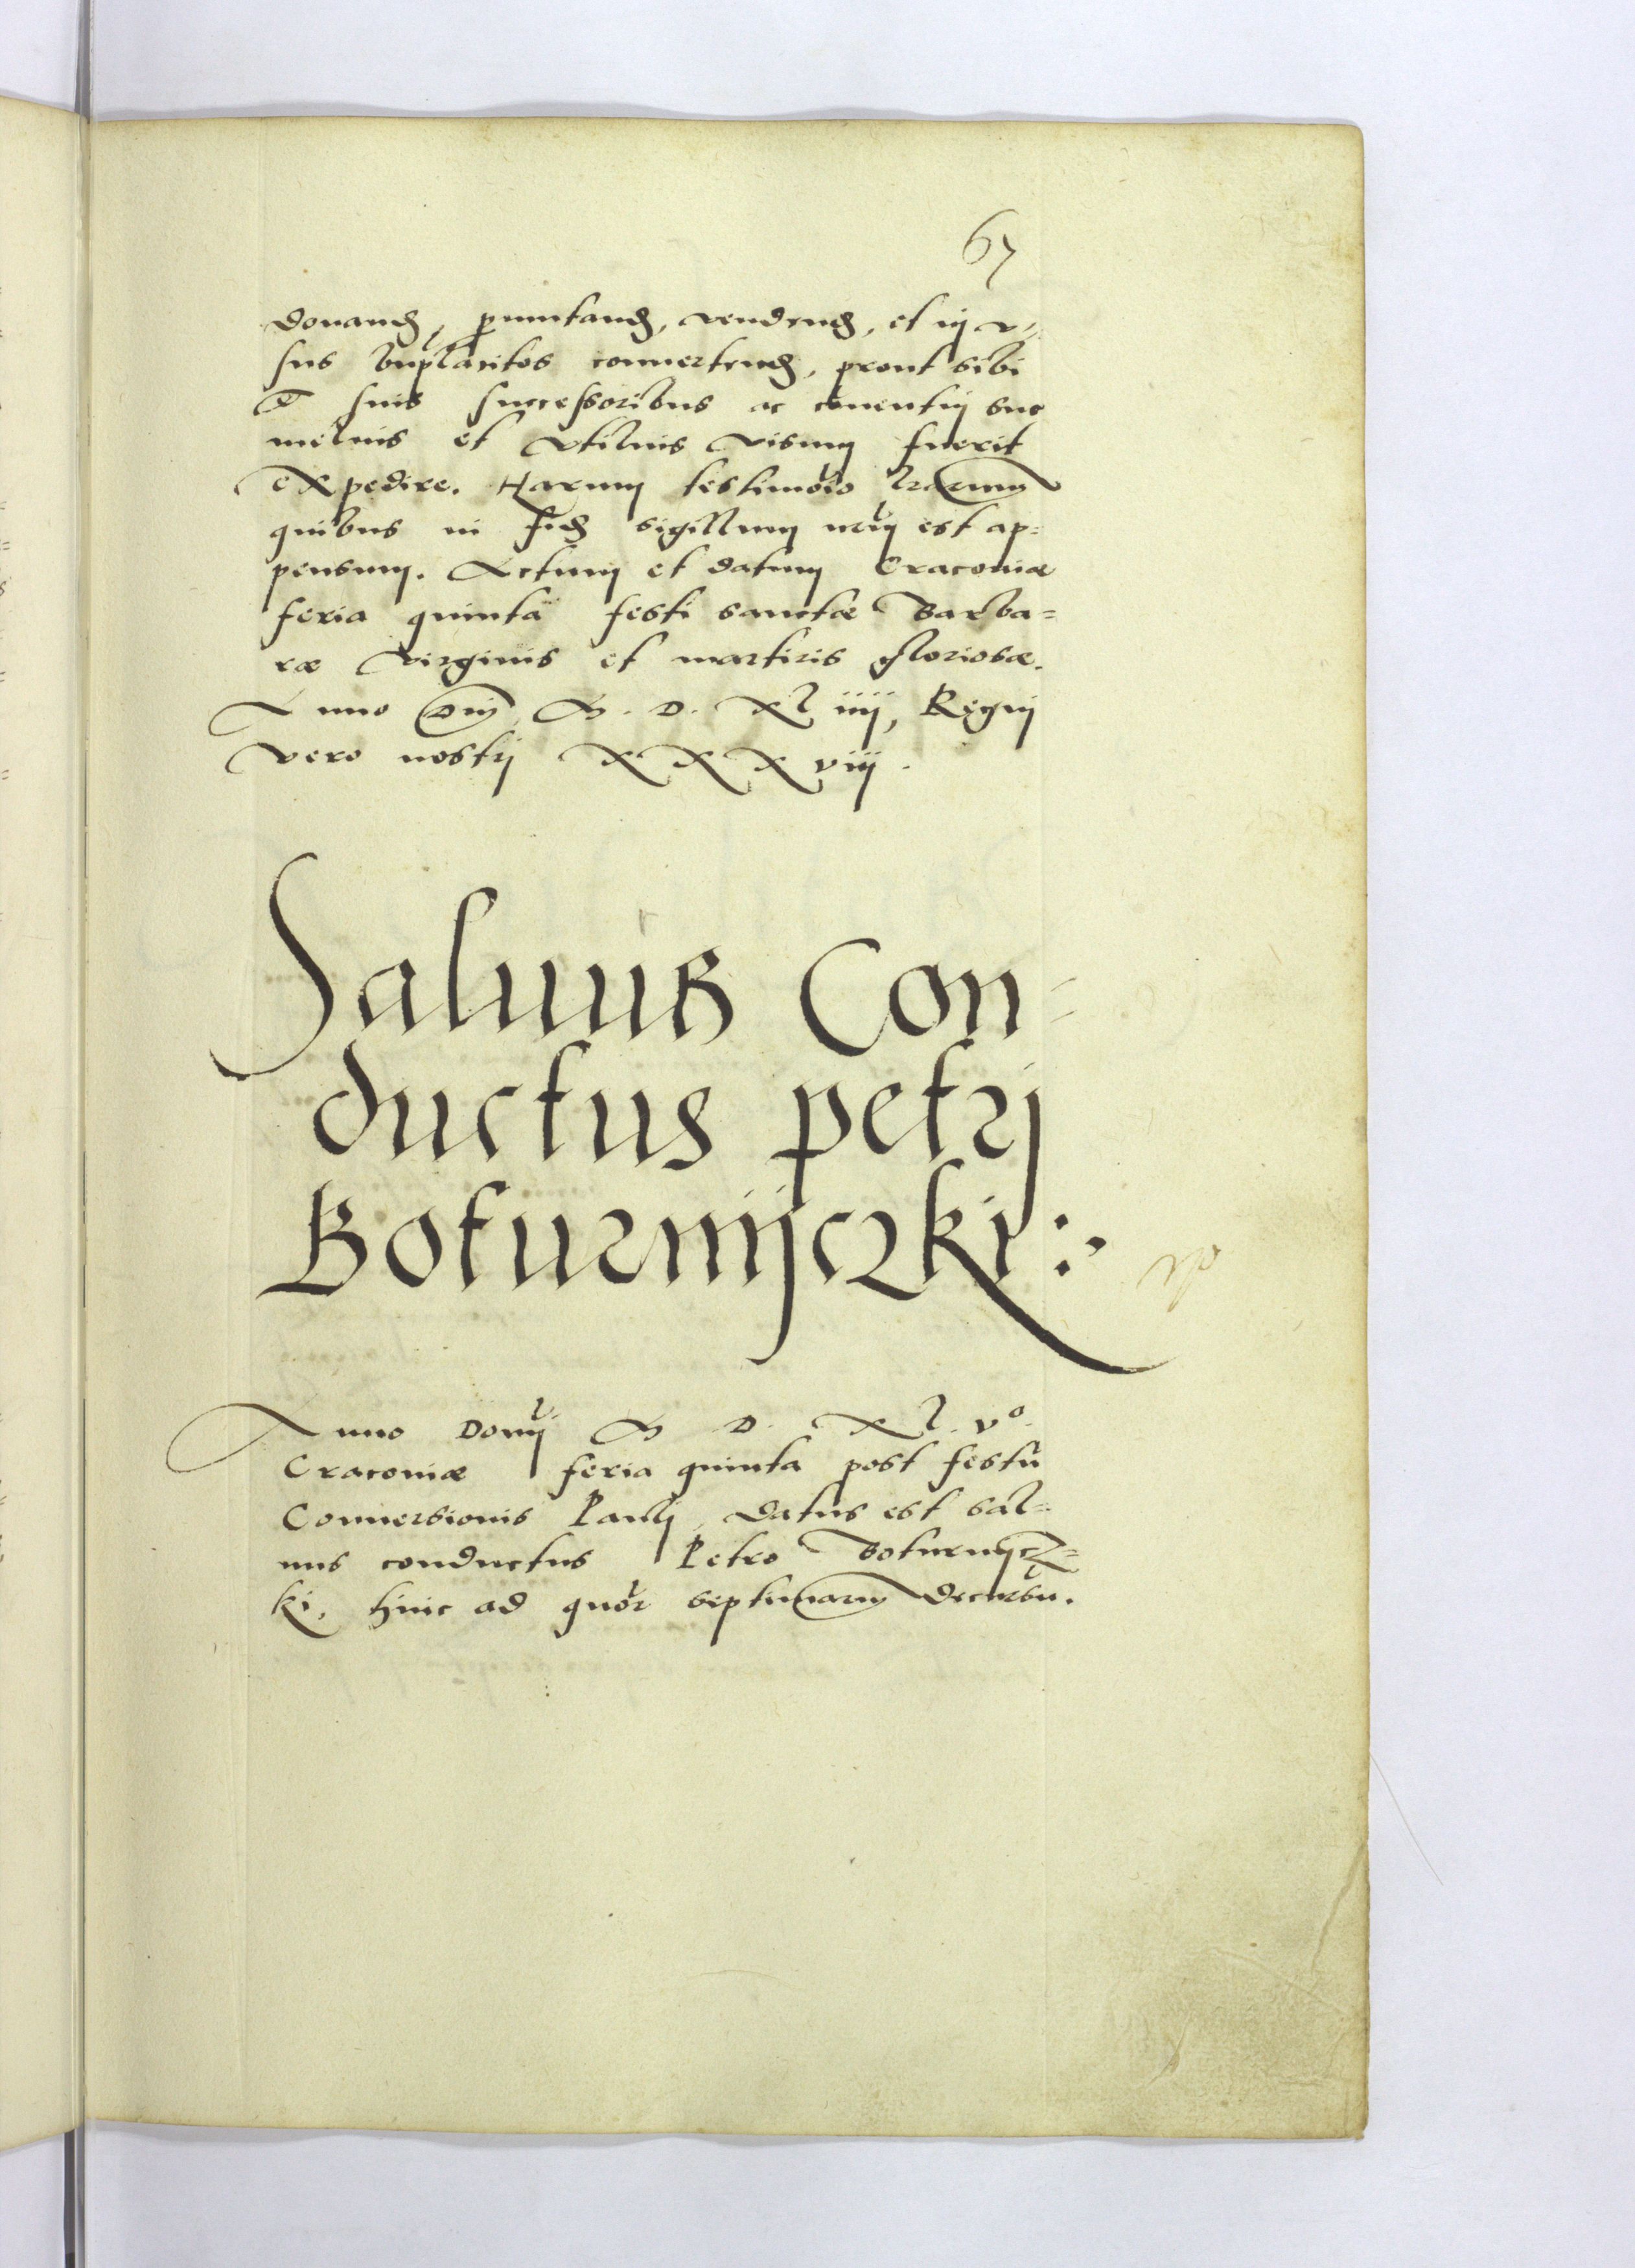 67
donand, permutand, vendend, et in v=
sus bnplacitos convertend, prout sibi
et suis successoribus ac conventui suo
melius et vtilius visum fuerit
expedire. Harum testimonio lrarum
quibus in fid sigillum nrum est ap=
pensum. Actum et datum Cracoviæ
feria quinta festi sanctæ Barba=
ræ virginis et martiris gloriosæ.
Anno Dni M. D. XL iiij, Regni
vero nostri XXX viij.
Saluus Con=
ductus petrj
Boturnijczki:
Anno Domi M D XL. vº.
Cracouiæ feria quinta post festu
Conuersionis Pauli, datus est sal=
uus conductus Petro Boturnijcz=
ki, hinc ad quor septimanaru decursu.